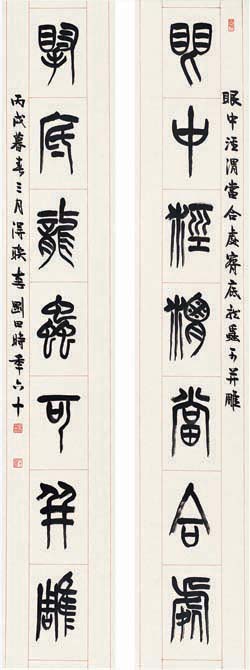 眼中涇渭當合處 底龍蟲可并雕
眼中涇渭當合處
掔底龍蟲可并雕
丙戌暮春三月得聯 剛田時年六十